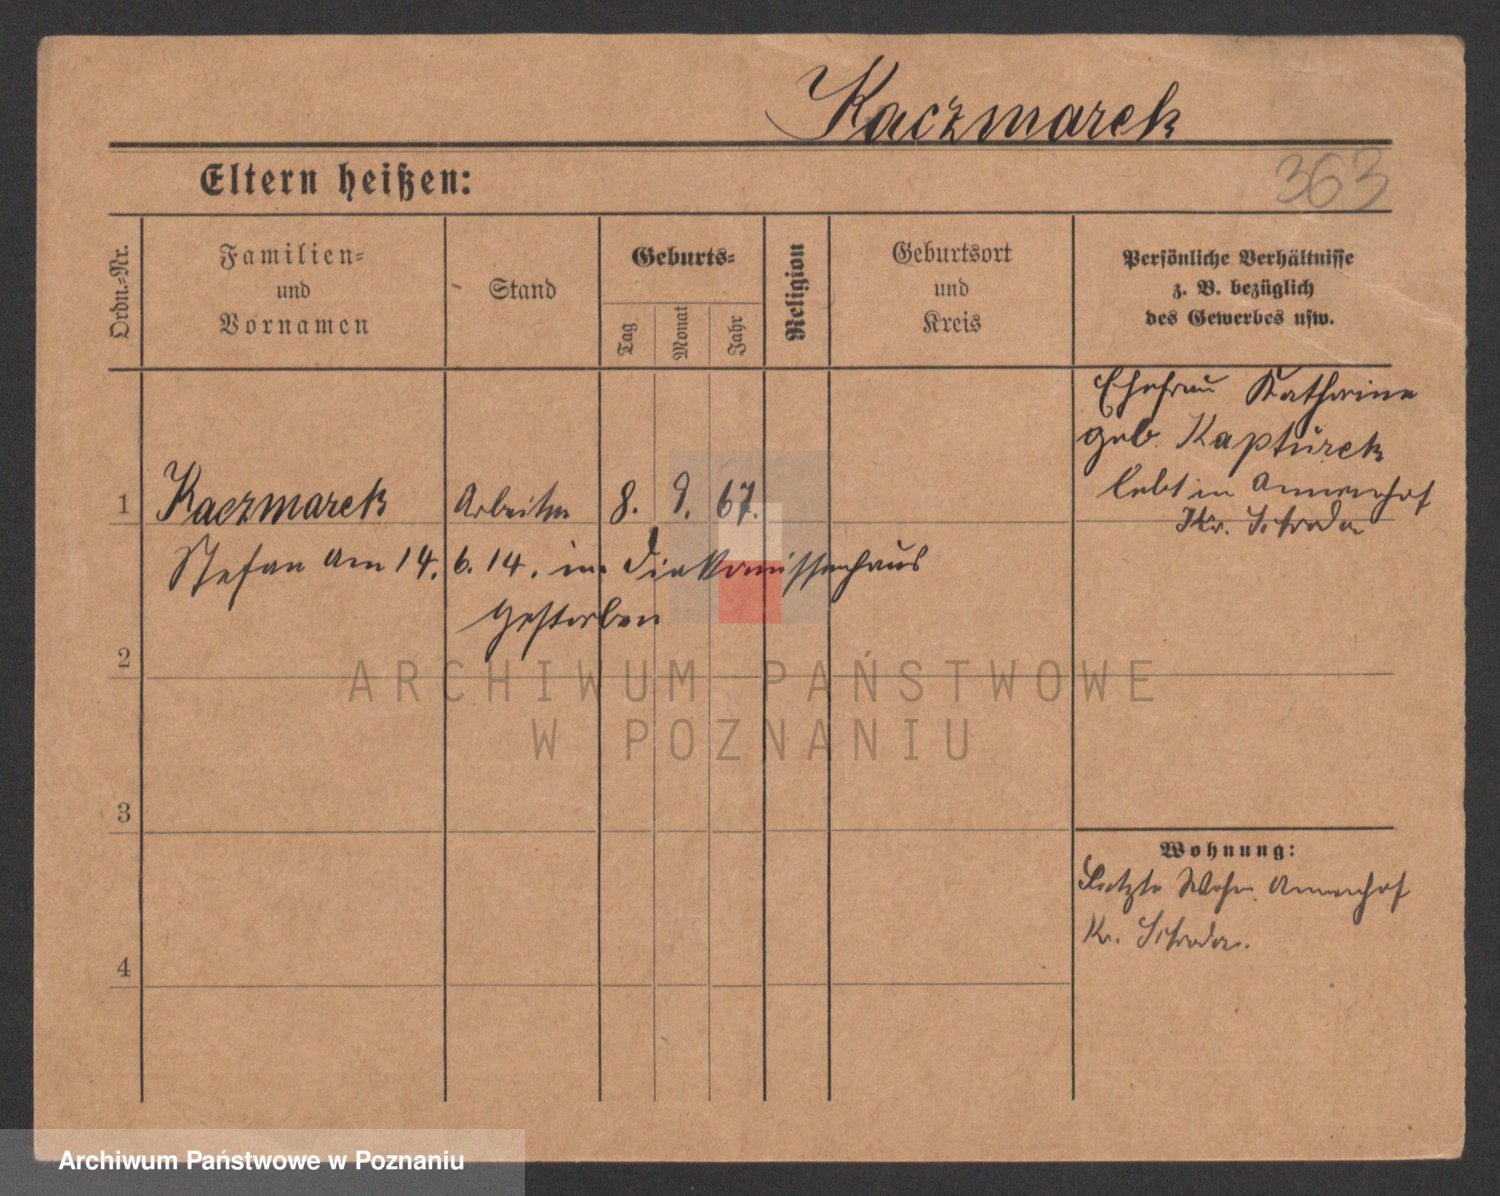 Kaczmarek
Eltern heißen:
363
Ordn.-Nr.
Familien-
und
Vornamen
Stand
Geburts-
Tag
Monat
Jahr
Religion
Geburtsort
und
Kreis
Persönliche Verhältnisse
z. B. bezüglich
des Gewerbes usw.
Ehefrau Katharine
geb. Kapturek
lebt in Annenhof
Kr. Schroda
1 Kaczmarek Arbeiter 8. 9. 67.
Stefan am 14. 6. 14. in Diakonissenhaus
gestorben
2
ARCHIWUM PAŃSTWOWE
W POZNANIU
3
Wohnung:
Letzte Wohn. Annenhof
Kr. Schroda.
4
Archiwum Państwowe w Poznaniu